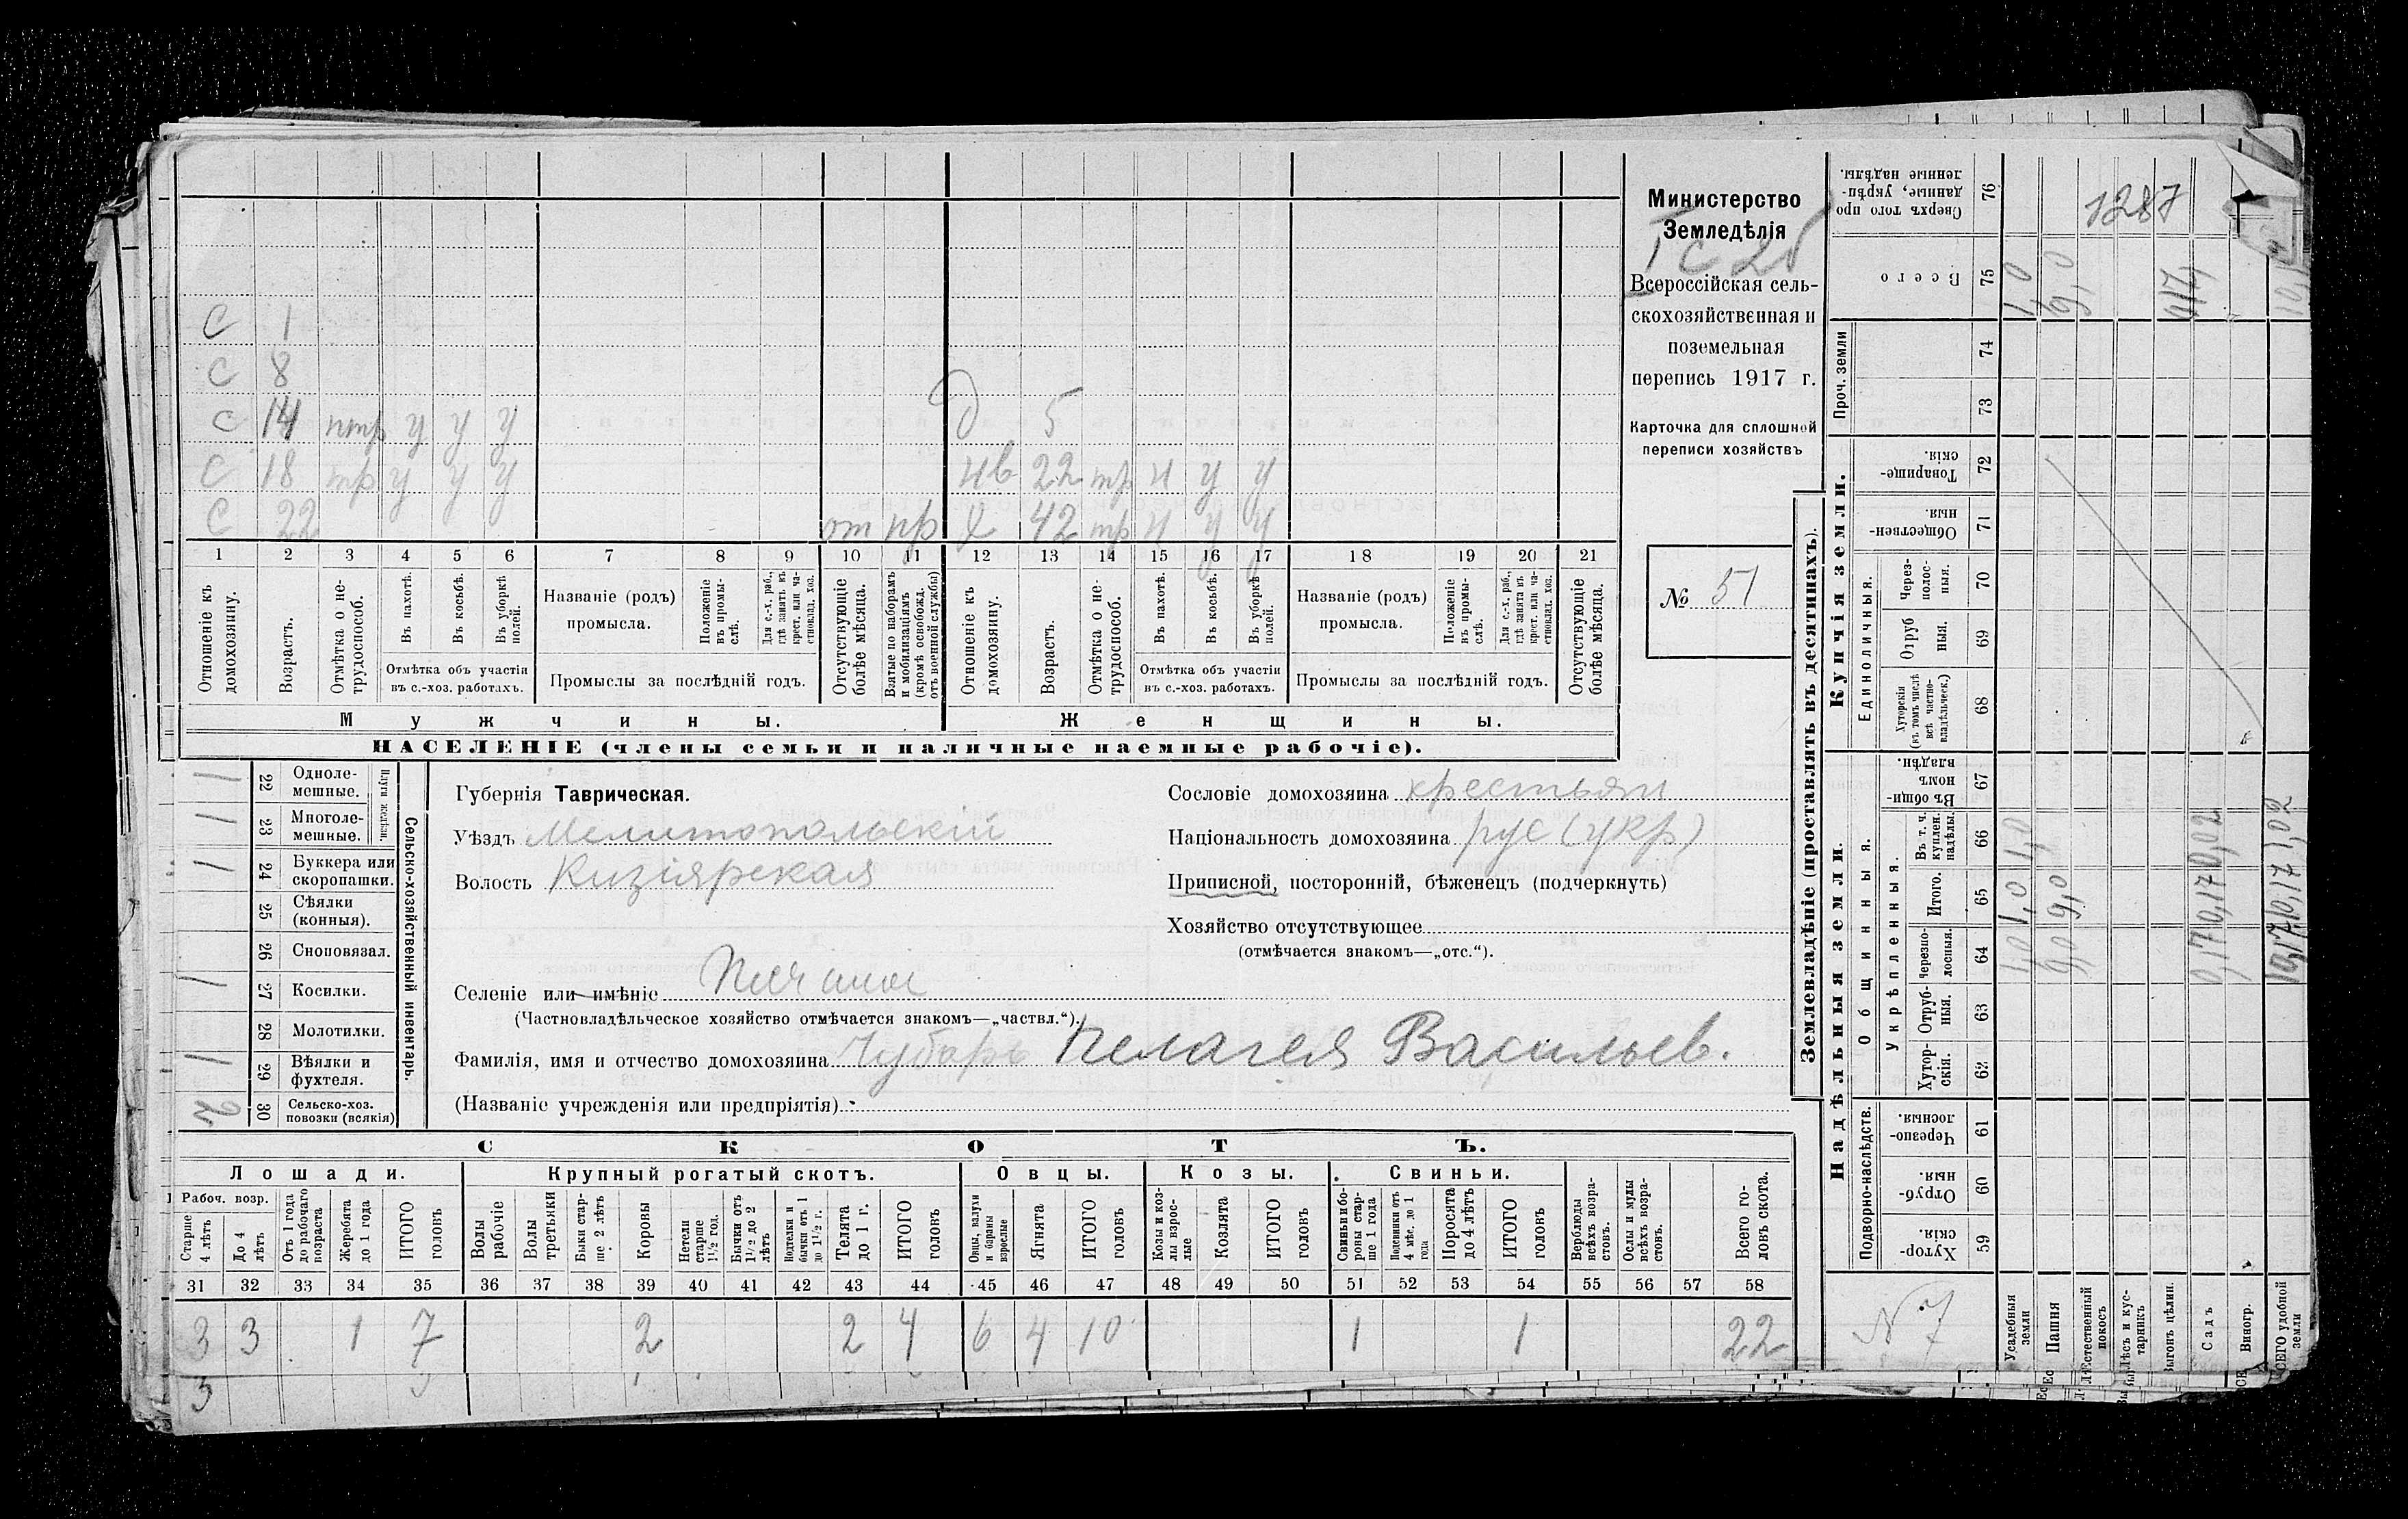 С 1
С 8
С 14 птр у у у Д 5
С 18 тр у у у нв 22 тр н у у
С 22 от пр Х 42 тр н у у
1 2 3 4 5 6 7 8 9 10 11 12 13 14 15 16 17 18 19 20 21
Отношеніе къ домохозяину.
Возрастъ.
Отмѣтка о не-
трудоспособ.
Въ пахотѣ.
Въ косьбѣ.
Въ уборкѣ полей.
Отмѣтка объ участіи
въ с.-хоз. работахъ.
Названіе (родъ)
промысла.
Положеніе въ промы-
слѣ.
Для с.-х. раб., гдѣ занятъ въ крест. или ча-
стновлад. хоз.
Промыслы за послѣдній годъ.
Отсутствующіе болѣе мѣсяца.
Взятые по наборамъ и мобилизаціямъ (кромѣ освобожд. отъ военной службы)
Отношеніе къ домохозяину.
Возрастъ.
Отмѣтка о не-
трудоспособ.
Въ пахотѣ.
Въ косьбѣ.
Въ уборкѣ полей.
Отмѣтка объ участіи
въ с.-хоз. работахъ.
Названіе (родъ)
промысла.
Положеніе въ промы-
слѣ.
Для с.-х. раб., гдѣ занята въ крест. или ча-
стновлад. хоз.
Промыслы за послѣдній годъ.
Отсутствующіе болѣе мѣсяца.
Мужчины.
Женщины.
НАСЕЛЕНІЕ (члены семьи и наличные наемные рабочіе).
Министерство
Земледѣлія
Всероссійская сель-
скохозяйственная и
поземельная
перепись 1917 г.
Карточка для сплошной
переписи хозяйствъ
№ 51
1 22 Одноле-
мешные.
1 23 Многоле-
мешные.
Плуги желѣзн.
1 24 Буккера или
скоропашки.
25 Сѣялки
(конныя).
26 Сноповязал.
1 27 Косилки.
28 Молотилки.
1 29 Вѣялки и
фухтеля.
2 30 Сельско-хоз.
повозки (всякія)
Сельско-хозяйственный инвентарь.
Губернія Таврическая.
Уѣздъ Мелитопольскій
Волость Кизіярская
Сословіе домохозяина крестьян
Національность домохозяина рус (укр)
Приписной, посторонній, бѣженецъ (подчеркнуть)
Хозяйство отсутствующее
(отмѣчается знакомъ—„отс.“).
Селеніе или имѣніе
(Частновладѣльческое хозяйство отмѣчается знакомъ—„частвл.“).
Фамилія, имя и отчество домохозяина Чубарь Пелагея Васильев.
(Названіе учрежденія или предпріятія)
СКОТЪ.
Лошади. Крупный рогатый скотъ. Овцы. Козы. Свиньи.
Рабоч. возр.
Старше 4 лѣтъ
До 4 лѣтъ
Отъ 1 года до рабочаго возраста
Жеребята до 1 года
ИТОГО головъ
Волы рабочіе
Волы третьяки
Быки стар-
ше 2 лѣтъ
Коровы
Нетели старше 1½ год.
Бычки отъ 1½ до 2 лѣтъ
Нодтелки и бычки отъ 1 до 1½ г.
Телята до 1 г.
ИТОГО головъ
Овцы, валухи и бараны взрослые
Ягнята
ИТОГО головъ
Козы и коз-
лы взрос-
лые
Козлята
ИТОГО головъ
Свиньи и бо-
ровы стар-
ше 1 года
Подсвинки отъ 4 мѣс. до 1 года
Поросята до 4 лѣтъ
ИТОГО головъ
Верблюды всѣхъ возра-
стовъ.
Ослы и мулы всѣхъ возра-
стовъ.
Всего го-
ловъ скота.
31 32 33 34 35 36 37 38 39 40 41 42 43 44 45 46 47 48 49 50 51 52 53 54 55 56 57 58
3 3 1 7 2 2 4 6 4 10 1 1 22
3
Землевладѣніе (проставлять въ десятинахъ).
Надѣльныя земли.
Купчія земли.
Проч. земли
Подворно-наслѣдств.
Общинныя.
Укрѣпленныя.
Единоличныя.
Сверхъ того про
данные, укрѣп-
ленные надѣлы.
76
1287
Всего
75
1,0
9,0
74
73
Товарище-
скія.
72
Обществен-
ныя.
71
Через-
полос-
ныя.
70
Отруб
ныя.
69
Хуторскія
(въ томъ числѣ всѣ частно-
владѣльческ.)
68
Въ общи-
номъ
владѣн.
67
Въ т. ч. куплен. надѣлы.
66
1,0
0,02
1,02
Итого.
65
1,0
9,0
0,17
10,17
Черезпо-
лосныя.
64
1,0
9,0
0,17
10,17
Отруб-
ныя.
63
Хутор-
скія.
62
Черезпо-
лосныя
61
Отруб-
ныя.
60
Хутор-
скія.
59
N 7
Усадебныя земли
Пашня
Естественный покосъ
Лѣсъ и кус-
тарникъ
Выгонъ цѣлин.
Садъ
Виногр.
ВСЕГО удобной земли